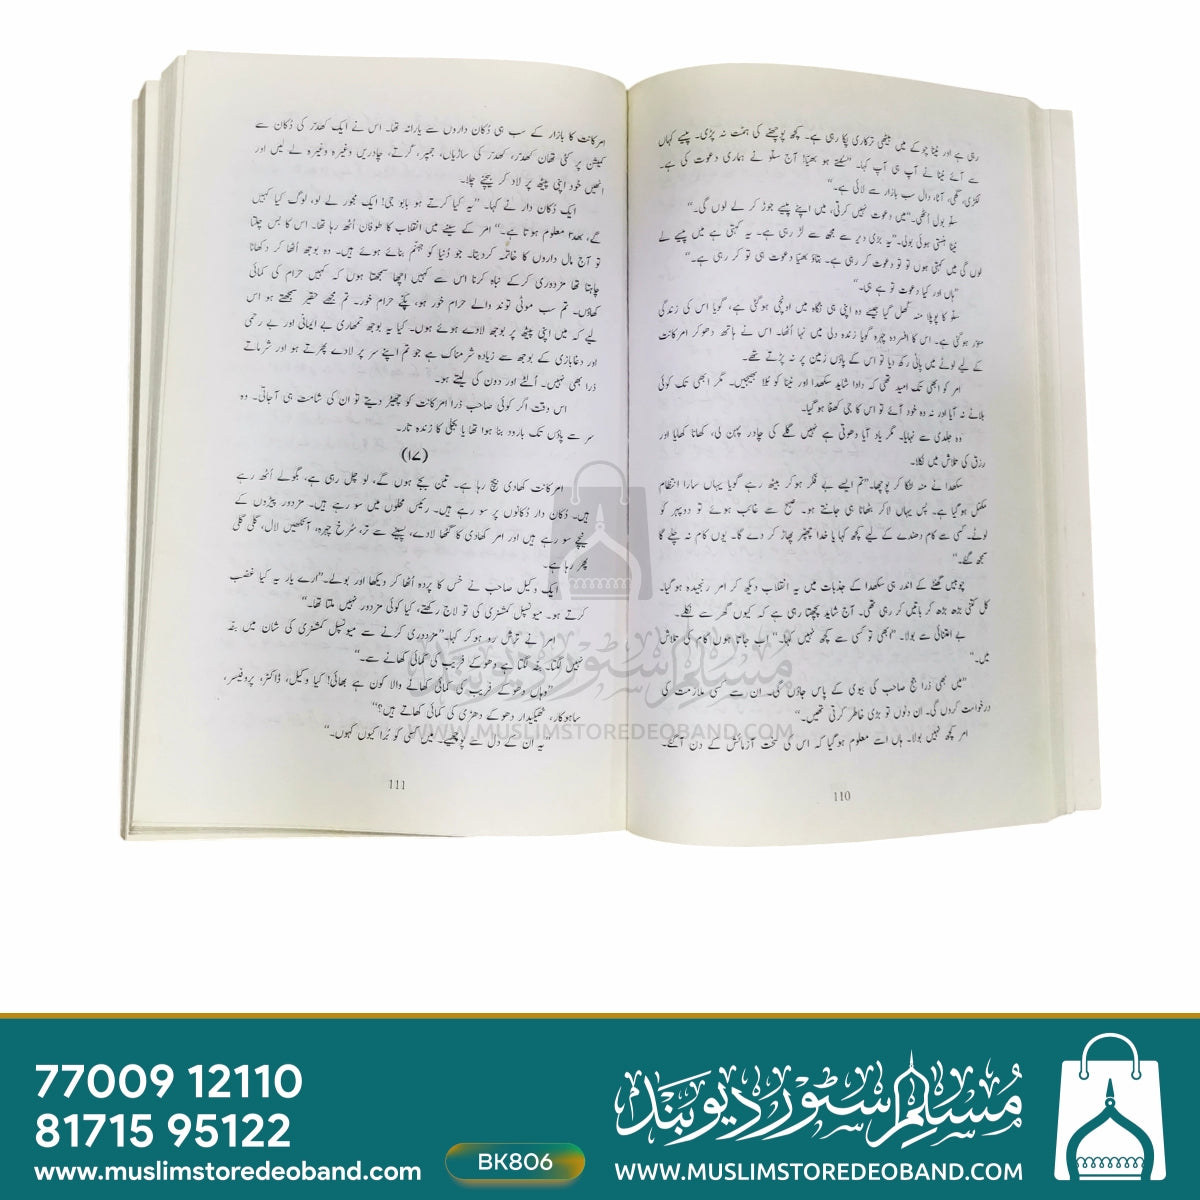 رہی ہے اور نینا چوکے میں بیٹھی ترکاری پکا رہی ہے۔ کچھ پوچھنے کی ہمت نہ پڑی۔ پیسے کہاں
سے آئے نینا نے آپ ہی آپ کہا۔ "سنتے ہو بھیّا! آج سلّو نے ہماری دعوت کی ہے۔
لکڑی، گھی، آٹا، دال سب بازار سے لائی ہے۔"
سلّو بول اُٹھی۔ "میں دعوت نہیں کرتی، میں اپنے پیسے جوڑ کر لے لوں گی۔"
نینا ہنستی ہوئی بولی۔ "یہ بڑی دیر سے مجھ سے لڑ رہی ہے۔ یہ کہتی ہے میں پیسے لے
لوں گی میں کہتی ہوں تو تو دعوت کر رہی ہے۔ بتاؤ بھیّا دعوت ہی تو کر رہی ہے۔"
"ہاں اور کیا دعوت تو ہے ہی۔"
سلّو کا پوپلا منہ کھل گیا جیسے وہ اپنی ہی نگاہ میں اونچی ہوگئی ہے، گویا اس کی زندگی
منوّر ہوگئی ہے۔ اس کا افسردہ چہرہ گویا زندہ دلی میں نہا اُٹھا۔ اس نے ہاتھ دھوکر امرکانت
کے لیے لوٹے میں پانی رکھ دیا تو اس کے پاؤں زمین پر نہ پڑتے تھے۔
امر کو ابھی تک امید تھی کہ دادا شاید سکھدا اور نینا کو بُلا بھیجیں۔ مگر ابھی تک کوئی
بلانے نہ آیا اور نہ وہ خود آئے تو اس کا جی کھٹا ہوگیا۔
وہ جلدی سے نہایا۔ مگر یاد آیا دھوتی ہے نہیں گلے کی چادر پہن لی، کھانا کھایا اور
رزق کی تلاش میں نکلا۔
سکھدا نے منہ لٹکا کر پوچھا۔ "تم ایسے بے فکر ہوکر بیٹھ رہے گویا یہاں سارا انتظام
مکمل ہوگیا ہے۔ بس یہاں لاکر بٹھانا ہی جانتے ہو۔ صبح سے غائب ہوئے تو دوپہر کو
لوٹے۔ کسی سے کام دھندے کے لیے کچھ کہا یا خدا چھپّر پھاڑ کر دے گا۔ یوں کام نہ چلے گا
سمجھ گئے۔"
چوبیں گھنٹے کے اندر ہی سکھدا کے جذبات میں یہ انقلاب دیکھ کر امر رنجیدہ ہوگیا۔
کل کتنی بڑھ بڑھ کر باتیں کر رہی تھی۔ آج شاید پچھتا رہی ہے کہ کیوں گھر سے نکلے۔
بے اعتنائی سے بولا۔ "ابھی تو کسی سے کچھ نہیں کہا۔" اب جاتا ہوں کام کی تلاش
میں۔"
"میں بھی ذرا جج صاحب کی بیوی کے پاس جاؤں گی۔ ان سے کسی ملازمت کی
درخواست کروں گی۔ ان دنوں تو بڑی خاطر کرتی تھیں۔"
امر کچھ نہیں بولا۔ ہاں اسے معلوم ہوگیا کہ اس کی سخت آزمائش کے دن آگئے۔
110
امرکانت کا بازار کے سب ہی دُکان داروں سے یارانہ تھا۔ اس نے ایک کھدّر کی دُکان سے
کمیشن پر کئی تھان کھدّر، کھدّر کی ساڑیاں، جمپر، گرتے، چادریں وغیرہ وغیرہ لے لیں اور
انھیں خود اپنی پیٹھ پر لاد کر بیچنے چلا۔
ایک دُکان دار نے کہا۔ "یہ کیا کرتے ہو بابو جی! ایک مجور لے لو، لوگ کیا کہیں
گے، بھدّا معلوم ہوتا ہے۔" امر کے سینے میں انقلاب کا طوفان اُٹھ رہا تھا۔ اس کا بس چلتا
تو آج مال داروں کا خاتمہ کردیتا۔ جو دُنیا کو جہنم بنائے ہوئے ہیں۔ وہ بوجھ اُٹھا کر دکھانا
چاہتا تھا مزدوری کرکے نباہ کرنا اس سے کہیں اچھا سمجھتا ہوں کہ کہیں حرام کی کمائی
کھاؤں۔ تم سب موٹی توند والے حرام خور ہو، پکّے حرام خور۔ تم مجھے حقیر سمجھتے ہو اس
لیے کہ میں اپنی پیٹھ پر بوجھ لاؤے ہوئے ہوں۔ کیا یہ بوجھ تمھاری بے ایمانی اور بے رحمی
اور دغابازی کے بوجھ سے زیادہ شرمناک ہے جو تم اپنے سر پر لادے پھرتے ہو اور شرماتے
ذرا بھی نہیں۔ اُلٹے اور دون کی لیتے ہو۔
اس وقت اگر کوئی صاحب ذرا امرکانت کو چھیڑ دیتے تو ان کی شامت ہی آجاتی۔ وہ
سر سے پاؤں تک بارود بنا ہوا تھا یا بجلی کا زندہ تار۔
(۱۷)
امرکانت کھادی بیچ رہا ہے۔ تین بجے ہوں گے، لو چل رہی ہے، بگولے اُٹھ رہے
ہیں۔ دُکان دار دُکانوں پر سو رہے ہیں۔ رئیس محلوں میں سو رہے ہیں۔ مزدور پیڑوں کے
نیچے سو رہے ہیں اور امر کھادی کا گٹھا لادے، پسینے سے تر، سُرخ چہرہ، آنکھیں لال، گلی گلی
پھر رہا ہے۔
ایک وکیل صاحب نے خس کا پردہ اُٹھا کر دیکھا اور بولے۔ "ارے یار یہ کیا غضب
کرتے ہو۔ میونسپل کمشنری کی تو لاج رکھتے، کیا کوئی مزدور نہیں ملتا تھا۔"
امر نے ترش رو ہوکر کہا۔ "مزدوری کرنے سے میونسپل کمشنری کی شان میں بٹّہ
نہیں لگتا۔ بٹّہ لگتا ہے دھوکے فریب کی کمائی کھانے سے۔"
"وہاں دھوکے فریب کی کمائی کھانے والا کون ہے بھائی! کیا وکیل، ڈاکٹر، پروفیسر،
ساہوکار، ٹھیکیدار دھوکے دھڑی کی کمائی کھاتے ہیں؟"
"یہ ان کے دل سے پوچھیے۔ میں کسی کو بُرا کیوں کہوں۔"
111
مسلم سٹور دیوبند
WWW.MUSLIMSTOREDEOBAND.COM
77009 12110
81715 95122
www.muslimstoredeoband.com
BK806
مسلم سٹور دیوبند
WWW.MUSLIMSTOREDEOBAND.COM